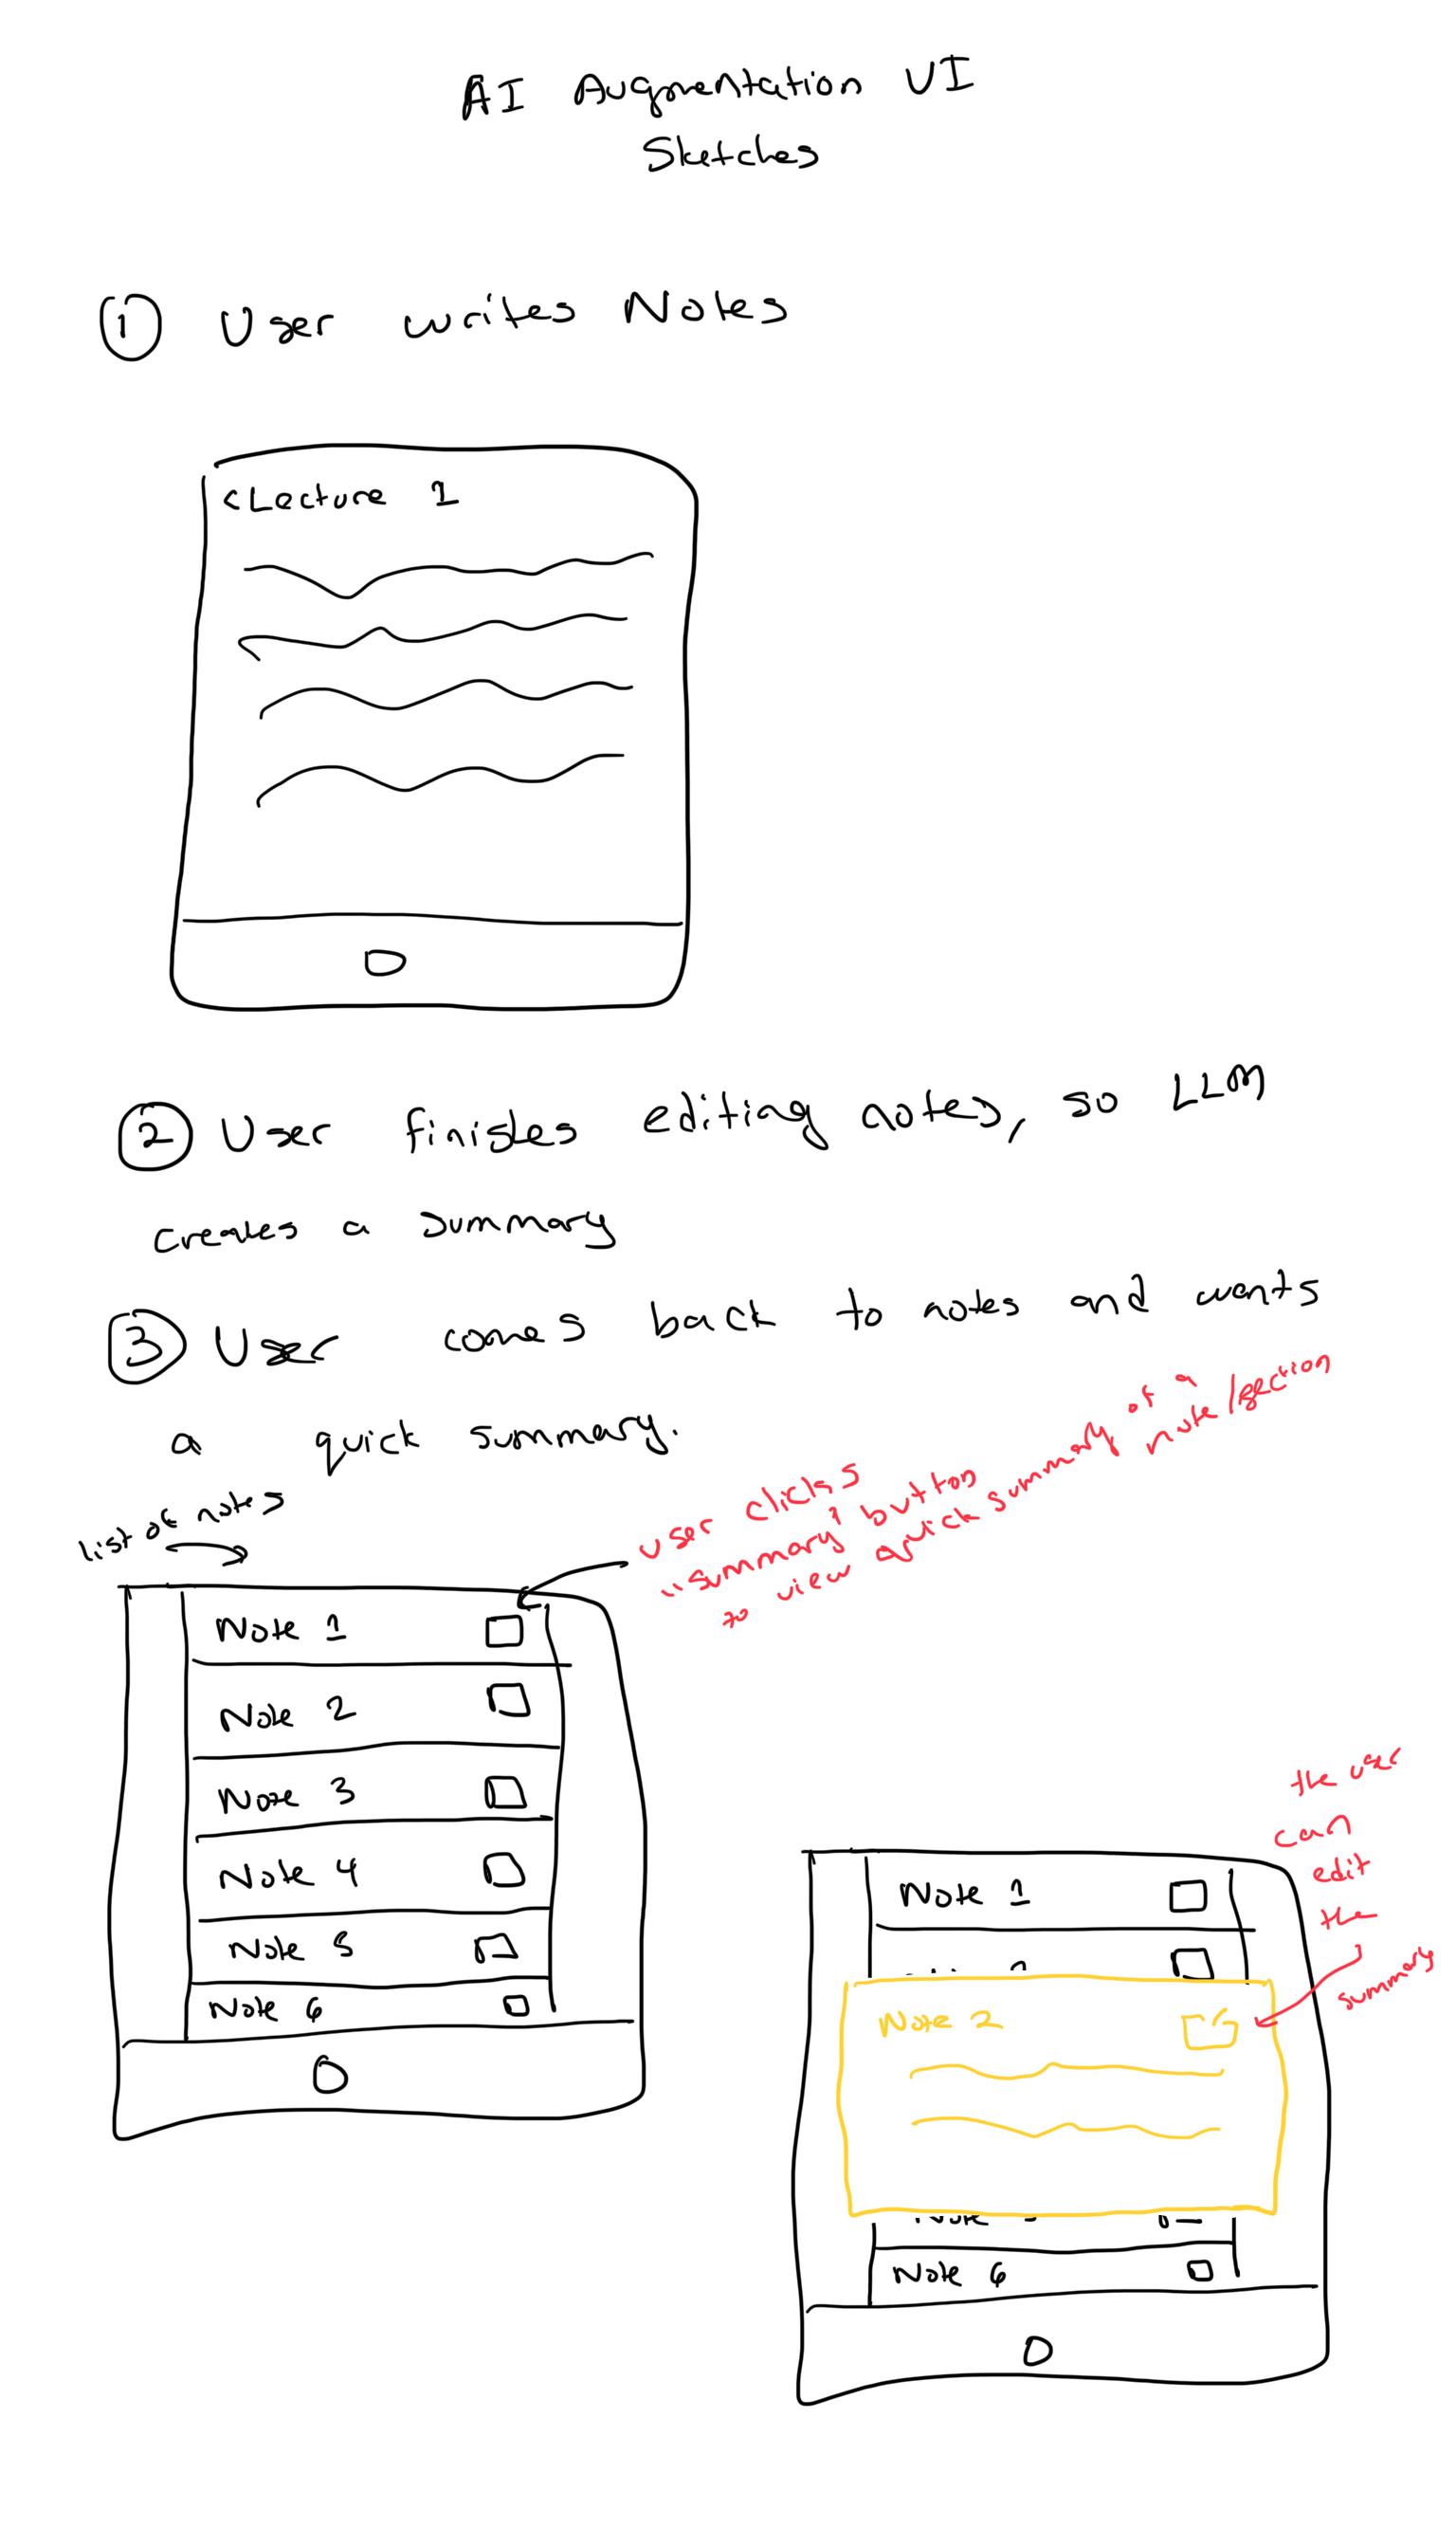 AI Augmentation UI
Sketches
1 User writes Notes
<Lecture 1
2 User finishes editing notes, so LLM
creates a summary
3 User comes back to notes and wants
a quick summary.
list of notes
user clicks
"summary" button
to view quick summary of a
note/section
Note 1
Note 2
Note 3
Note 4
Note 5
Note 6
the user
can
edit
the
summary
Note 1
Note 2
Note 6